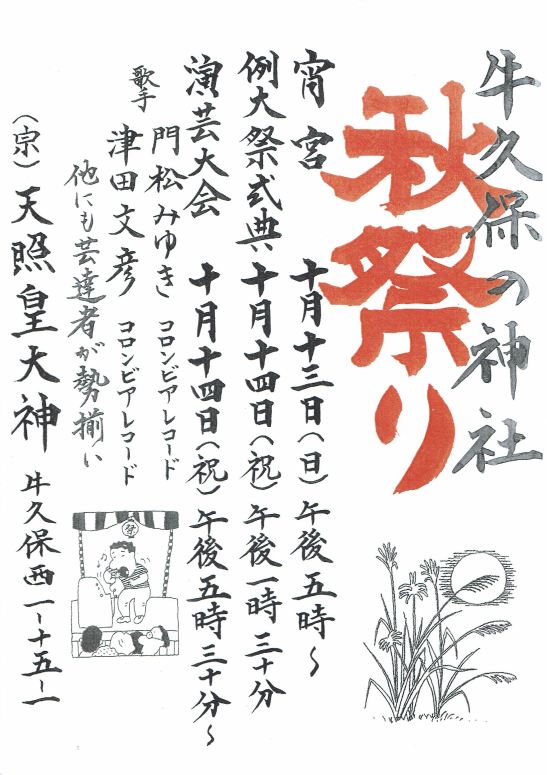 牛久保の神社
秋祭り
宵宮 十月十三日(日)午後五時〜
例大祭式典 十月十四日(祝)午後一時三十分
演芸大会 十月十四日(祝)午後五時三十分〜
歌手 門松みゆき コロンビアレコード
津田文彦 コロンビアレコード
他にも芸達者が勢揃い
(宗)天照皇大神 牛久保西一ー十五ー一
祭